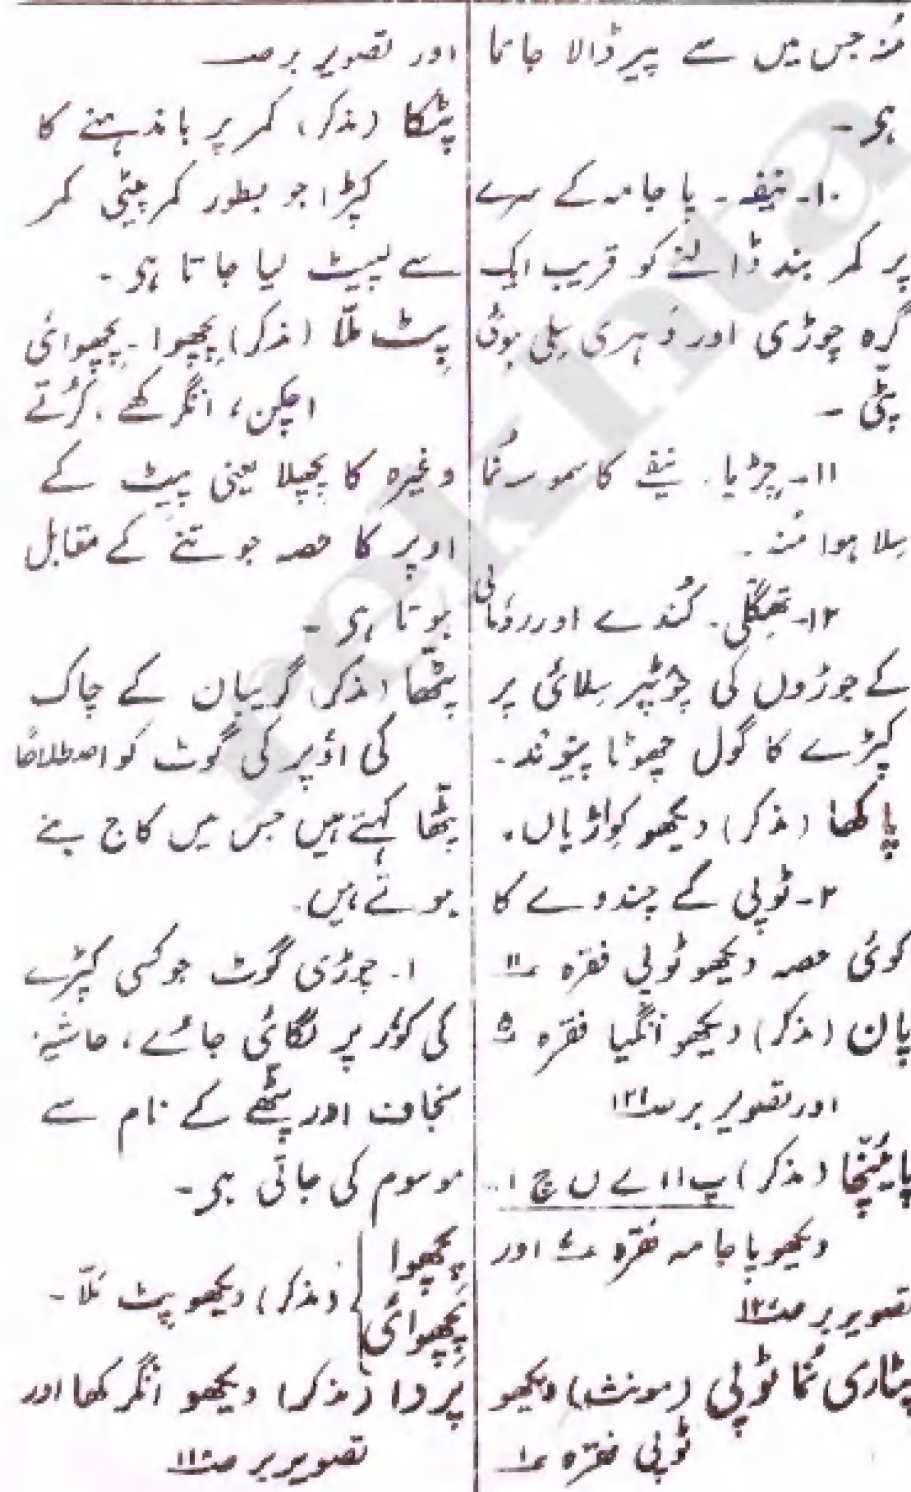 مُنہ جس میں سے پیر ڈالا جاتا
ہی ۔
۱۰۔ نیفہ ۔ پا جامہ کے سرے
پر کمر بند ڈالنے کو قریب ایک
گرہ چوڑی اور دُہری سِلی ہوئی
پٹّی ۔
۱۱۔ چِڑیا ۔ نیفے کا سموسہ نُما
سِلا ہوا مُنہ ۔
۱۲۔ تھِگلی ۔ کُندے اور رومالی
کے جوڑوں کی سِلائی پر
کپڑے کا گول چھوٹا پیوند ۔
پاکھا (مذکر) دیکھو کواڑیاں ۔
۲۔ ٹوپی کے چندوے کا
کوئی حصہ دیکھو ٹوپی فقرہ ۱۱
پان (مذکر) دیکھو انگیا فقرہ ۵
اور تصویر بر صـ۱۲۱
پائنچا (مذکر) پ ا ا ے ں چ ا ۔
دیکھو پا جامہ فقرہ اور
تصویر بر صـ۱۲۰
پٹاری نُما ٹوپی (مونث) دیکھو
ٹوپی فقرہ ۱
اور تصویر بر صـ
پٹکا (مذکر) کمر پر باندہنے کا
کپڑا جو بطور کمر پیٹی کمر
سے لپیٹ لیا جاتا ہی ۔
پِٹ ملّا (مذکر) پِچھوا ۔ پِچھوائی
اچکن ، انگرکھے ، کُرتے
وغیرہ کا پچھلا یعنی پیٹ کے
اوپر کا حصہ جو تنے کے مقابل
ہوتا ہی ۔
پٹھّا (مذکر) گریبان کے چاک
کی اُوپر کی گوٹ کو اصطلاحاً
پٹھّا کہتے ہیں جس میں کاج بنے
ہوتے ہیں ۔
۱۔ چوڑی گوٹ جو کسی کپڑے
کی کور پر لگائی جائے ، حاشیہ
سنجاف اور پٹھّے کے نام سے
موسوم کی جاتی ہی ۔
پِچھوا
پِچھوائی (مذکر) دیکھو پٹ ملّا ۔
پردا (مذکر) دیکھو انگرکھا اور
تصویر بر صـ۱۱۰